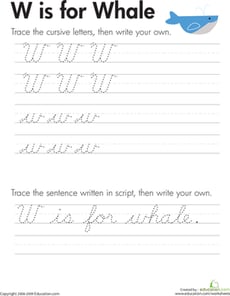 W is for Whale
Trace the cursive letters, then write your own.
W W W
W W W
w w w
w w w
Trace the sentence written in script, then write your own.
W is for whale.
Education.com